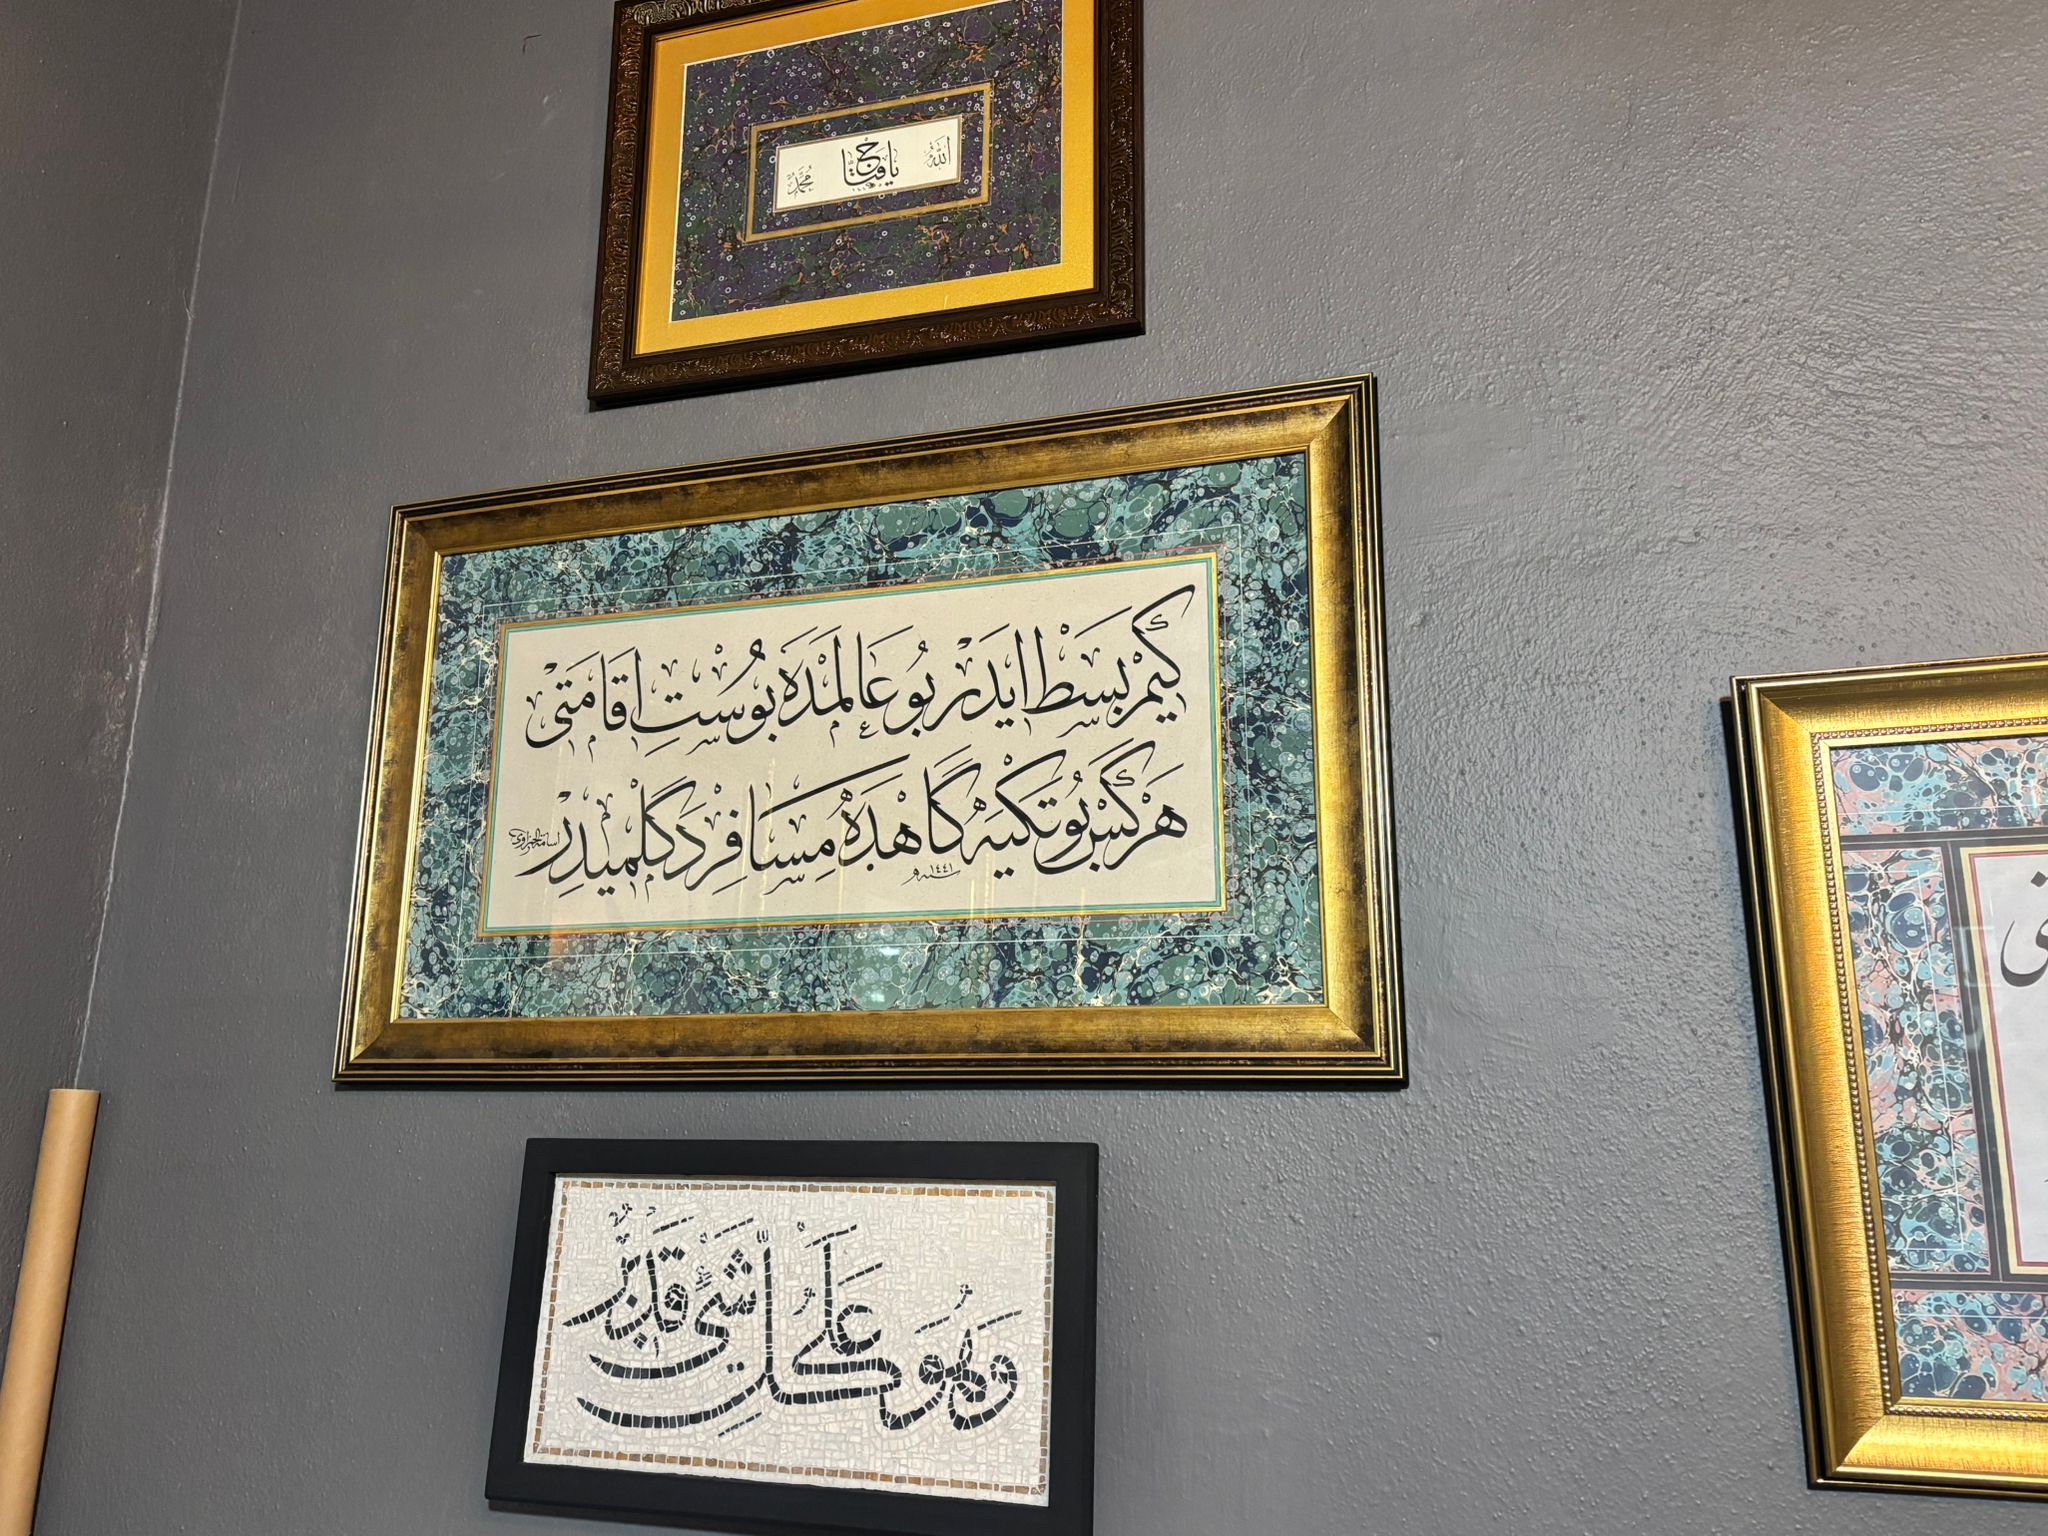 الله
يا فتاح
محمد
كيم بسط ايدر بو عالمده پوست اقامتى
هر كس بو تكيه كاهده مسافر دگلميدر
سنه ١٤٤١
وهو على كل شيء قدير